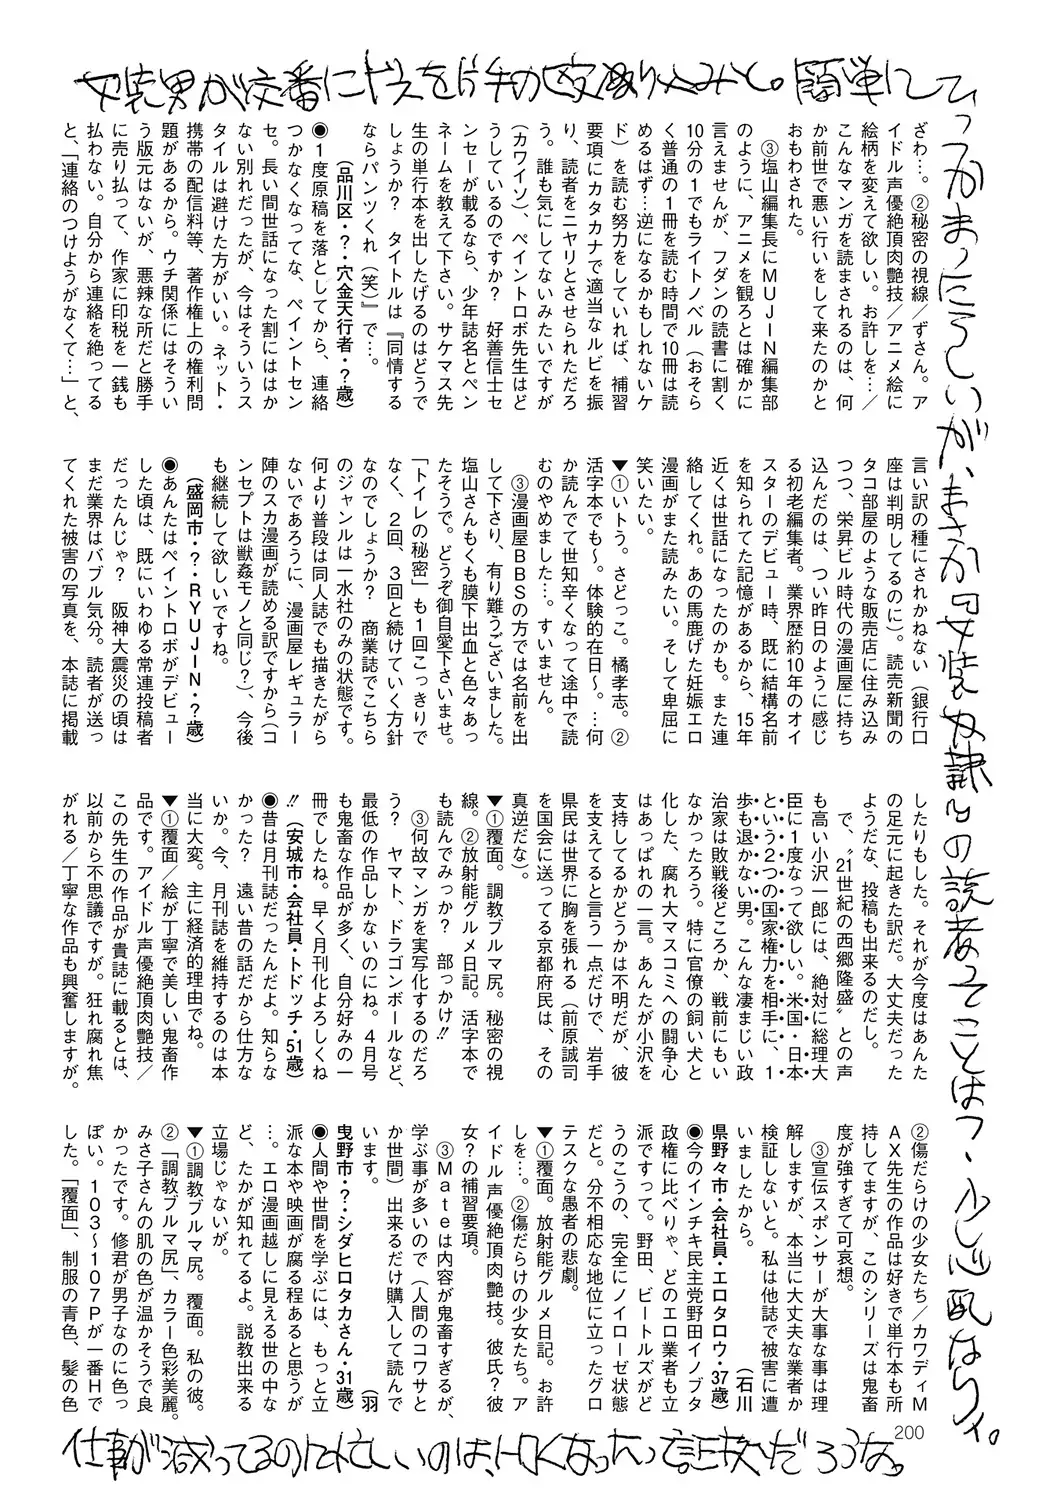 女装男が交番にドスを片手の殴り込みと。簡単にひ
っつかまったらしいが、まさか「女装奴隷」の読者ってことは?、少し心配なり。
ざわ…。②秘密の視線/ずさん。ア
イドル声優絶頂肉艶技/アニメ絵に
絵柄を変えて欲しい。お許しを…/
こんなマンガを読まされるのは、何
か前世で悪い行いをして来たのかと
おもわされた。
③塩山編集長にMUJIN編集部
のように、アニメを観ろとは確かに
言えませんが、フダンの読書に割く
10分の1でもライトノベル(おそら
く普通の1冊を読む時間で10冊は読
めるはず…逆になるかもしれないケ
ド)を読む努力をしていれば、補習
要項にカタカナで適当なルビを振
り、読者をニヤリとさせられただろ
う。誰も気にしてないみたいですが
(カワイソ)、ペイントロボ先生はど
うしているのですか? 好善信士セ
ンセーが載るなら、少年誌名とペン
ネームを教えて下さい。サケマス先
生の単行本を出したげるのはどうで
しょうか? タイトルは『同情する
ならパンツくれ(笑)』で…。
(品川区・?・穴金天行者・?歳)
◉1度原稿を落としてから、連絡
つかなくなってな、ペイントセン
セ。長い間世話になった割にはか
ない別れだったが、今はそういうス
タイルは避けた方がいい。ネット・
携帯の配信料等、著作権上の権利問
題があるから。ウチ関係にはそうい
う版元はないが、悪辣な所だと勝手
に売り払って、作家に印税を一銭も
払わない。自分から連絡を絶ってる
と、「連絡のつけようがなくて…」と、
言い訳の種にされかねない(銀行口
座は判明してるのに)。読売新聞の
タコ部屋のような販売店に住み込み
つつ、栄昇ビル時代の漫画屋に持ち
込んだのは、つい昨日のように感じ
る初老編集者。業界歴約10年のオイ
スターのデビュー時、既に結構名前
を知られてた記憶があるから、15年
近くは世話になったのかも。また連
絡してくれ。あの馬鹿げた妊娠エロ
漫画がまた読みたい。そして卑屈に
笑いたい。
▼①いトう。さどっこ。橘孝志。②
活字本でも〜。体験的在日〜。…何
か読んでて世知辛くなって途中で読
むのやめました…。すいません。
③漫画屋BBSの方では名前を出
して下さり、有り難うございました。
塩山さんもくも膜下出血と色々あっ
たそうで。どうぞ御自愛下さいませ。
「トイレの秘密」も1回こっきりで
なく、2回、3回と続けていく方針
なのでしょうか? 商業誌でこちら
のジャンルは一水社のみの状態です。
何より普段は同人誌でも描きたがら
ないであろうに、漫画屋レギュラー
陣のスカ漫画が読める訳ですから(コ
ンセプトは獣姦モノと同じ?)、今後
も継続して欲しいですね。
(盛岡市・?・RYUJIN・?歳)
◉あんたはペイントロボがデビュー
した頃は、既にいわゆる常連投稿者
だったんじゃ? 阪神大震災の頃は
まだ業界はバブル気分。読者が送っ
てくれた被害の写真を、本誌に掲載
したりもした。それが今度はあんた
の足元に起きた訳だ。大丈夫だった
ようだな、投稿も出来るのだし。
で、〝21世紀の西郷隆盛〟との声
も高い小沢一郎には、絶対に総理大
臣に1度なって欲しい。米国・日本
という2つの国家権力を相手に、1
歩も退かない男。こんな凄まじい政
治家は敗戦後どころか、戦前にもい
なかったろう。特に官僚の飼い犬と
化した、腐れ大マスコミへの闘争心
はあっぱれの一言。あんたが小沢を
支持してるかどうかは不明だが、彼
を支えてると言う一点だけで、岩手
県民は世界に胸を張れる(前原誠司
を国会に送ってる京都府民は、その
真逆だな)。
▼①覆面。調教ブルマ尻。秘密の視
線。②放射能グルメ日記。活字本で
も読んでみっか? 部っかけ!!
③何故マンガを実写化するのだろ
う? ヤマト、ドラゴンボールなど、
最低の作品しかないのにね。4月号
も鬼畜な作品が多く、自分好みの一
冊でしたね。早く月刊化よろしくね
!! (安城市・会社員・トドッチ・51歳)
◉昔は月刊誌だったんだよ。知らな
かった? 遠い昔の話だから仕方な
いか。今、月刊誌を維持するのは本
当に大変。主に経済的理由でね。
▼①覆面/絵が丁寧で美しい鬼畜作
品です。アイドル声優絶頂肉艶技/
この先生の作品が貴誌に載るとは、
以前から不思議ですが。狂れ腐れ焦
がれる/丁寧な作品も興奮しますが。
②傷だらけの少女たち/カワディM
AX先生の作品は好きで単行本も所
持してますが、このシリーズは鬼畜
度が強すぎて可哀想。
③宣伝スポンサーが大事な事は理
解しますが、本当に大丈夫な業者か
検証しないと。私は他誌で被害に遭
いましたから。 (石川
県野々市・会社員・エロタロウ・37歳)
◉今のインチキ民主党野田イノブタ
政権に比べりゃ、どのエロ業者も立
派ですって。野田、ビートルズがど
うのこうの、完全にノイローゼ状態
だと。分不相応な地位に立ったグロ
テスクな愚者の悲劇。
▼①覆面。放射能グルメ日記。お許
しを…。②傷だらけの少女たち。ア
イドル声優絶頂肉艶技。彼氏?彼
女?の補習要項。
③Mateは内容が鬼畜すぎるが、
学ぶ事が多いので(人間のコワサと
か世間)出来るだけ購入して読んで
います。 (羽
曳野市・?・シダヒロタカさん・31歳)
◉人間や世間を学ぶには、もっと立
派な本や映画が腐る程あると思うが
…。エロ漫画越しに見える世の中な
ど、たかが知れてるよ。説教出来る
立場じゃないが。
▼①調教ブルマ尻。覆面。私の彼。
②「調教ブルマ尻」、カラー色彩美麗。
みさ子さんの肌の色が温かそうで良
かったです。修君が男子なのに色っ
ぽい。103〜107Pが一番Hで
した。「覆面」、制服の青色、髪の色
200
仕事が減ってるのに忙しいのは、トロくなったって証拠だろうな。